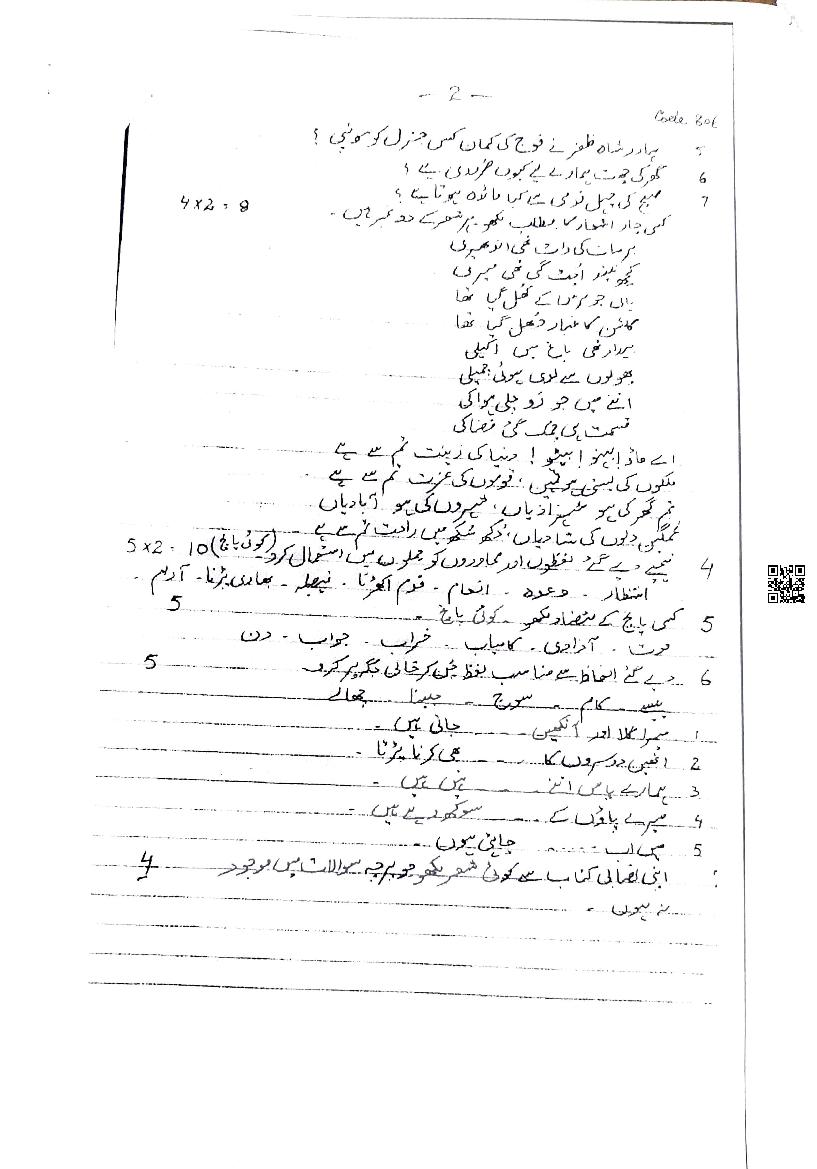 - 2 -
Code 306
بہادر شاہ ظفر نے فوج کی کمان کس جنرل کو سونپی ؟
6 گھر کی چھت ہمارے لیے کیوں ضروری ہے ؟
7 صبح کی چہل قدمی سے کیا فائدہ ہوتا ہے ؟
کسی چار اشعار کا مطلب لکھو ہر شعر کے دو نمبر ہیں ۔ 4x2=8
برسات کی رات تھی اندھیری
کچھ نیند اُچٹ گئی تھی میری
ہاں جو برس کے کھل گیا تھا
گلشن کا غبار دُھل گیا تھا
بیدار تھی باغ میں اکیلی
پھولوں سے لدی ہوئی چمیلی
اتنے میں جو رَو چلی ہوا کی
قسمت ہی چمک گئی فضا کی
اے ماؤ! بہنو! بیٹیو! دنیا کی زینت تم سے ہے
ملکوں کی بستی ہو تمہیں، قوموں کی عزت تم سے ہے
تم گھر کی ہو شہزادیاں، شہروں کی ہو آبادیاں
غمگیں دلوں کی شادیاں، دُکھ سُکھ میں راحت تم سے ہے
4 نیچے دیے گئے لفظوں اور محاوروں کو جملوں میں استعمال کرو۔ (کوئی پانچ) 5x2=10
انتظار ۔ وعدہ ۔ انعام ۔ قدم اکھڑنا ۔ فیصلہ ۔ بھاری پڑنا ۔ آرام ۔
5 کسی پانچ کے متضاد لکھو ۔ کوئی پانچ ۔ 5
موت ۔ آزادی ۔ کامیاب ۔ خراب ۔ جواب ۔ دن
6 دیے گئے الفاظ سے مناسب لفظ چُن کر خالی جگہ پر کرو۔ 5
پیسے ۔ کام ۔ سورج ۔ جینا چھالے
1 میرا گلا اور آنکھیں ---- جاتی ہیں ۔
2 انھیں دوسروں کا ---- بھی کرنا پڑتا ۔
3 ہمارے پاس اتنے ---- نہیں ہیں ۔
4 میرے پاؤں کے ---- سوکھ رہے ہیں ۔
5 میں اب ------ چاہتی ہوں ۔
اپنی نصابی کتاب سے کوئی شعر لکھو جو پرچہ سوالات میں موجود 4
نہ ہوں ۔